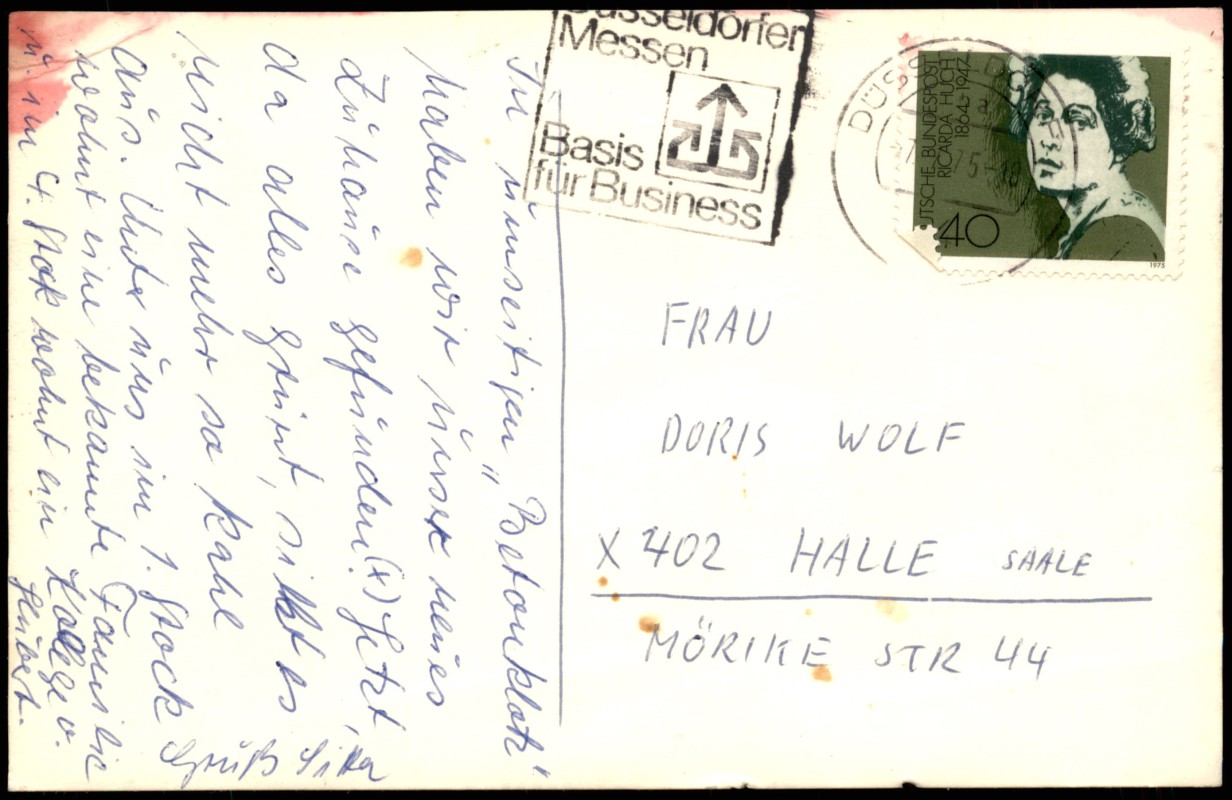 In unserigen „Betonklotz“
haben wir unser neues
Zuhause gefunden! (x) Jetzt,
da alles grünt, sieht es
nicht mehr so kahl
aus. Unter uns im 1. Stock
wohnt eine bekannte Familie
u. im 4. Stock wohnt ein Kollege v.
Hubert.
Gruß
Düsseldorfer
Messen
Basis
für Business
DÜSSELDO
75
DEUTSCHE BUNDESPOST
RICARDA HUCH
1864-1947
40
1975
FRAU
DORIS WOLF
X 402 HALLE SAALE
MÖRIKE STR 44